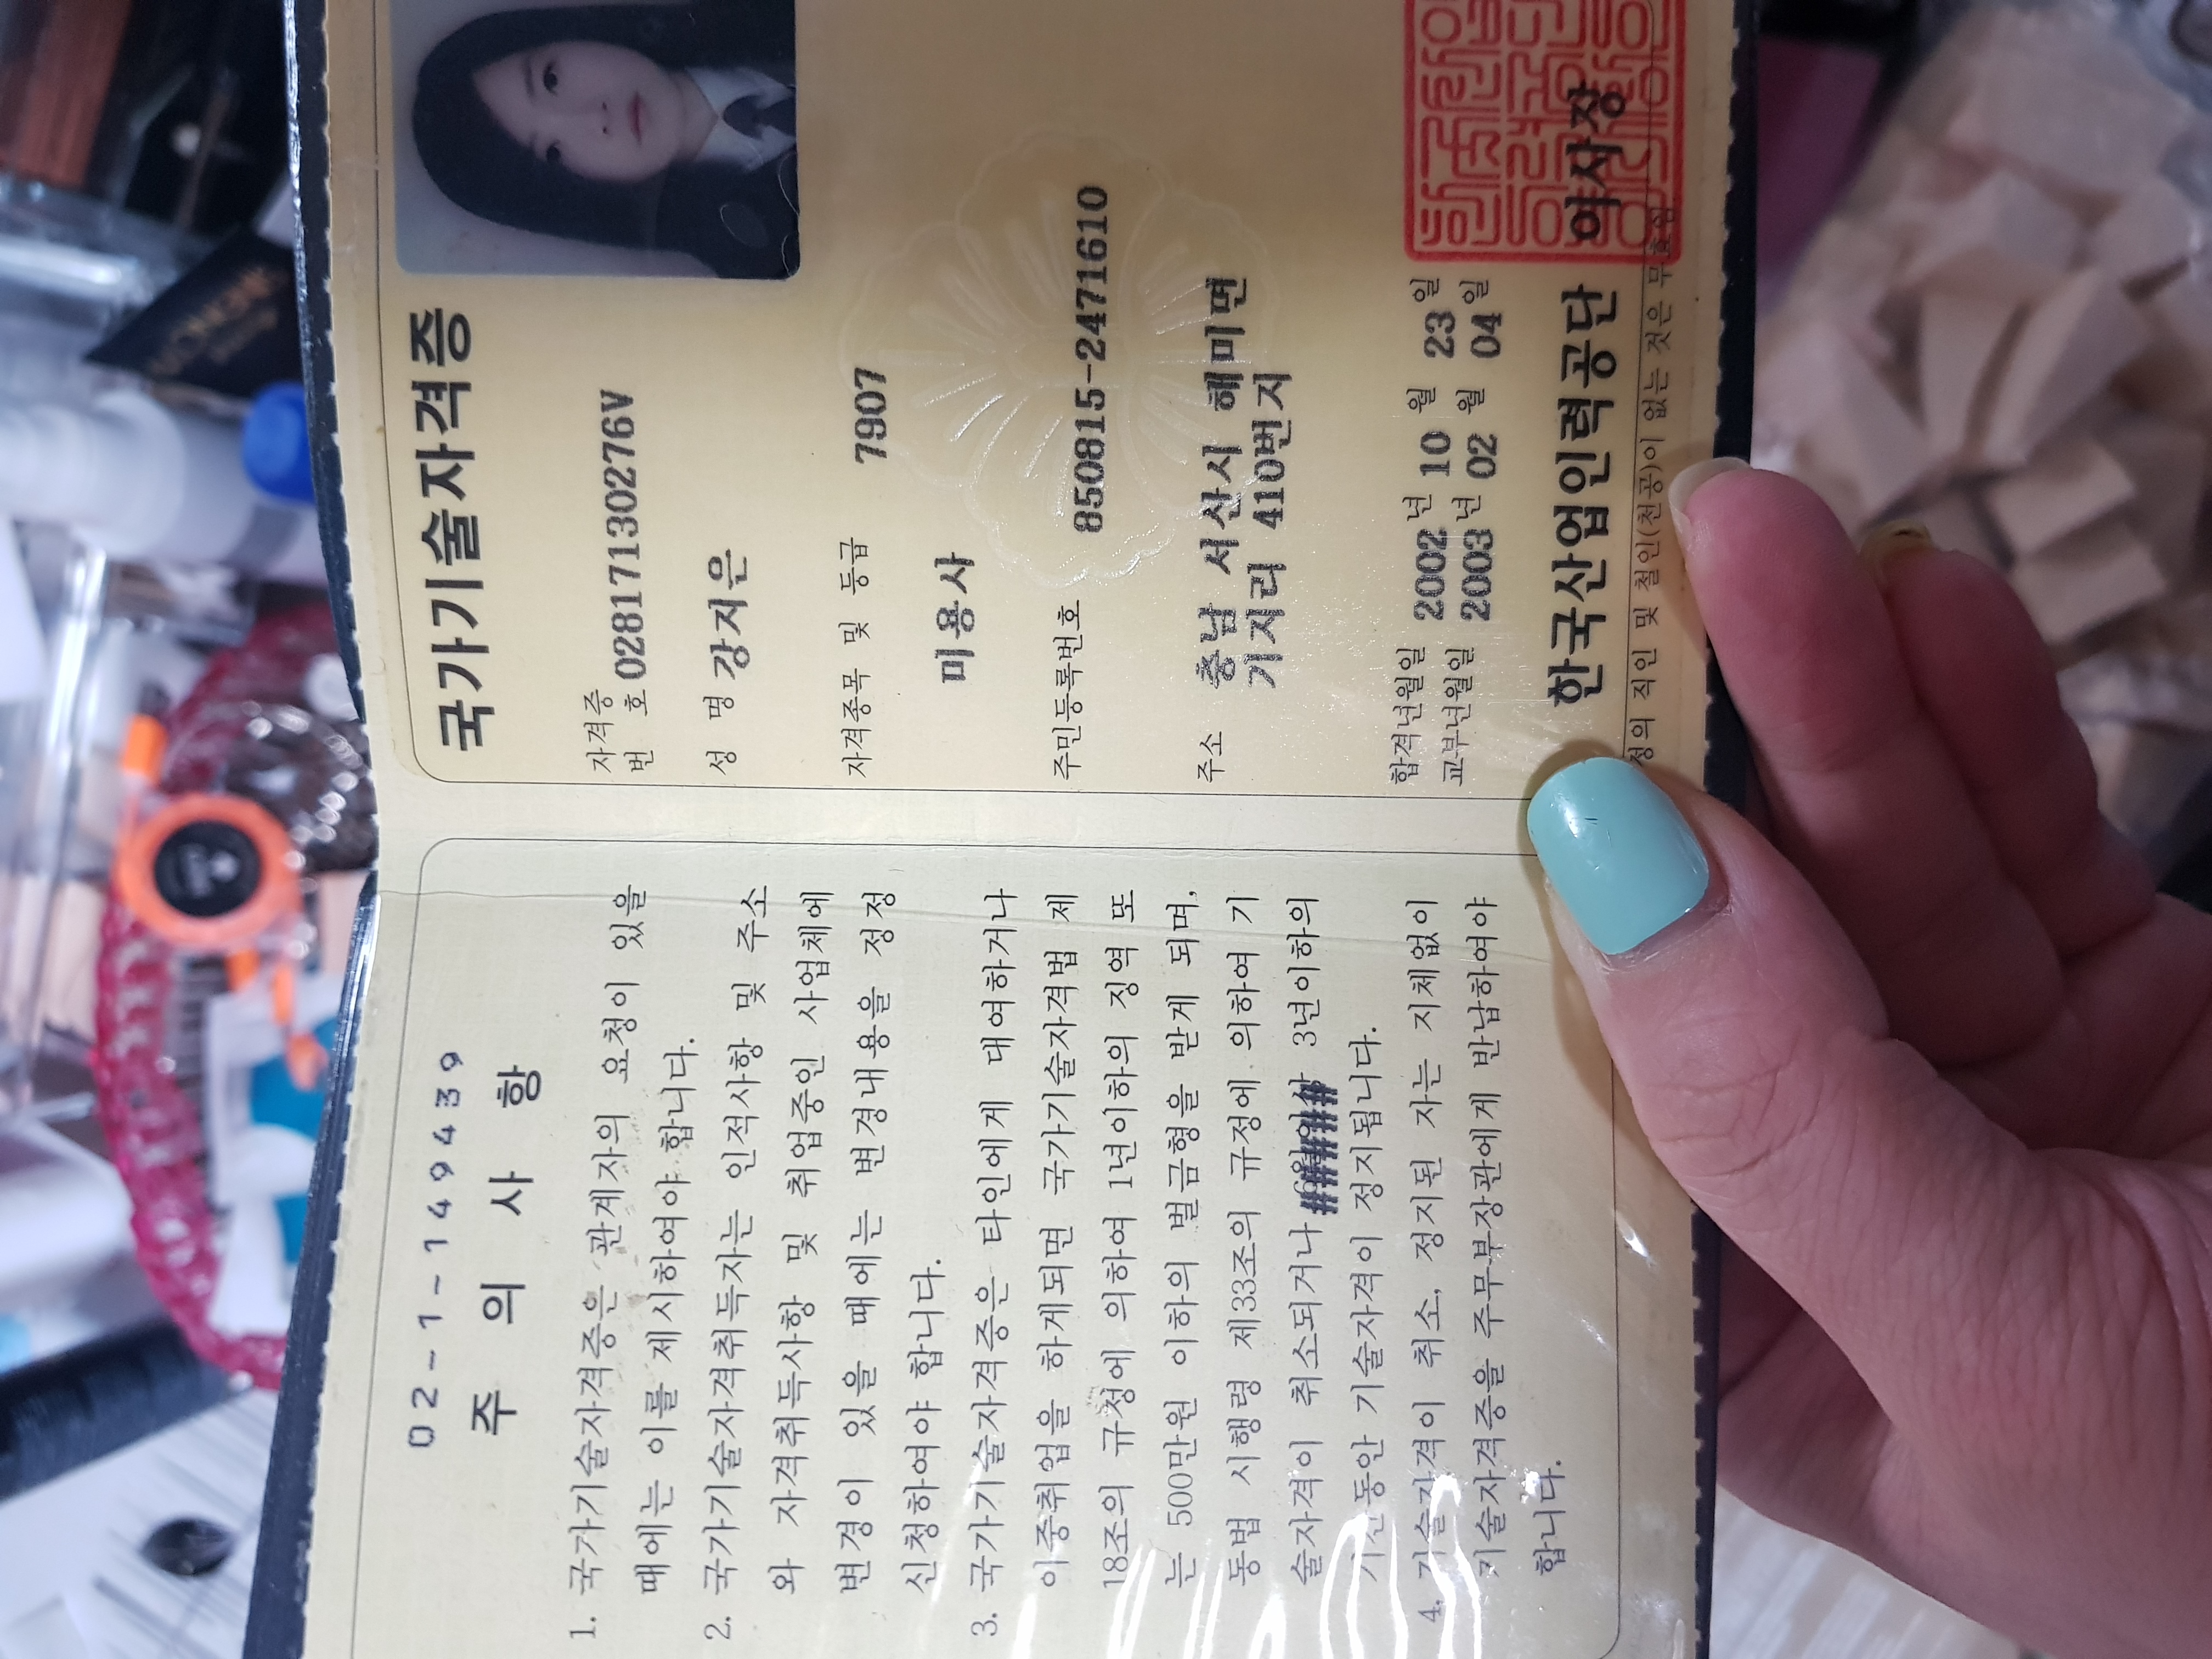 02-1-149439
주 의 사 항
1. 국가기술자격증은 관계자의 요청이 있을
때에는 이를 제시하여야 합니다.
2. 국가기술자격취득자는 인적사항 및 주소
와 자격취득사항 및 취업중인 사업체에
변경이 있을 때에는 변경내용을 정정
신청하여야 합니다.
3. 국가기술자격증은 타인에게 대여하거나
이중취업을 하게되면 국가기술자격법 제
18조의 규정에 의하여 1년이하의 징역 또
는 500만원 이하의 벌금형을 받게 되며,
동법 시행령 제33조의 규정에 의하여 기
술자격이 취소되거나 3년이하의
기간동안 기술자격이 정지됩니다.
4. 기술자격이 취소, 정지된 자는 지체없이
기술자격증을 주무부장관에게 반납하여야
합니다.
국가기술자격증
자격증
번 호 02817130276V
성 명 강지은
자격종목 및 등급 7907
미용사
주민등록번호 850815-2471610
주소 충남 서산시 해미면
기지리 410번지
합격년월일 2002 년 10 월 23 일
교부년월일 2003 년 02 월 04 일
한국산업인력공단 이사장
정의 직인 및 철인(천공)이 없는 것은 무효임